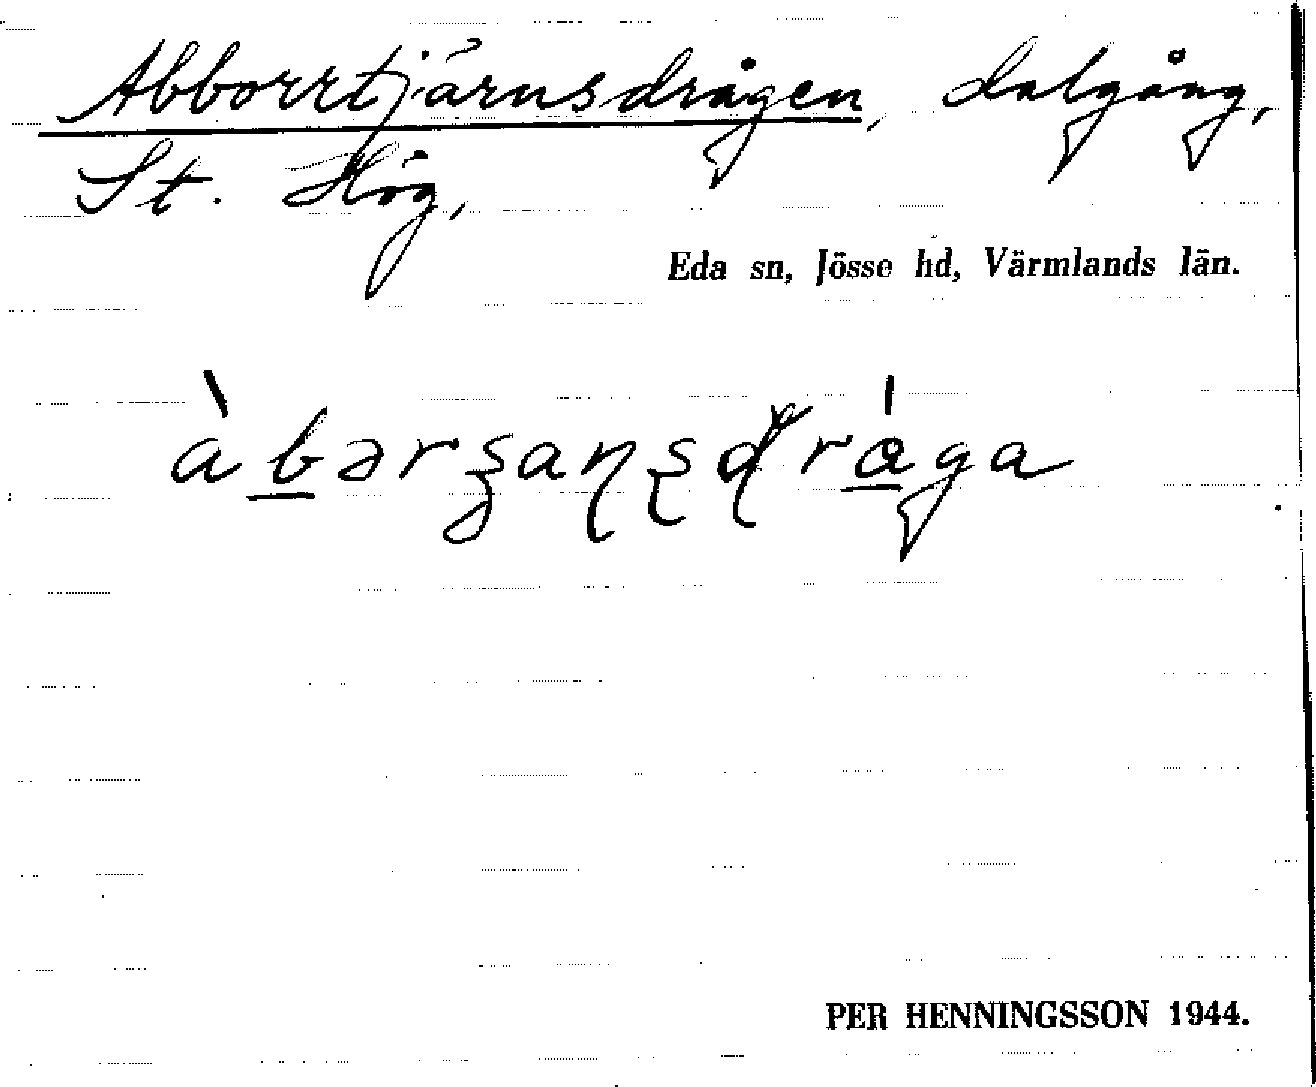 Abborrtjärnsdrågen, dalgång,
St. Hög,
Eda sn, Jösse hd, Värmlands län.
PER HENNINGSSON 1944.